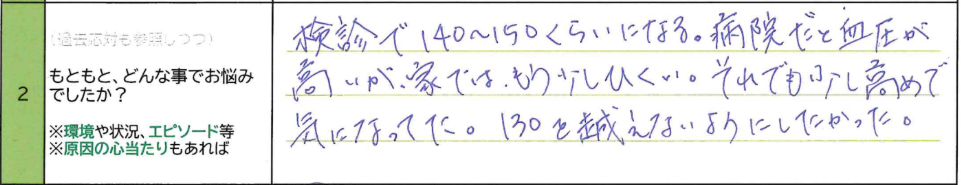 2
(過去応対も参照しつつ)
もともと、どんな事でお悩み
でしたか？
※環境や状況、エピソード等
※原因の心当たりもあれば
検診で140～150くらいになる。病院だと血圧が
高いが、家では、もう少しひくい。それでも少し高めで
気になってた。130を越えないようにしたかった。